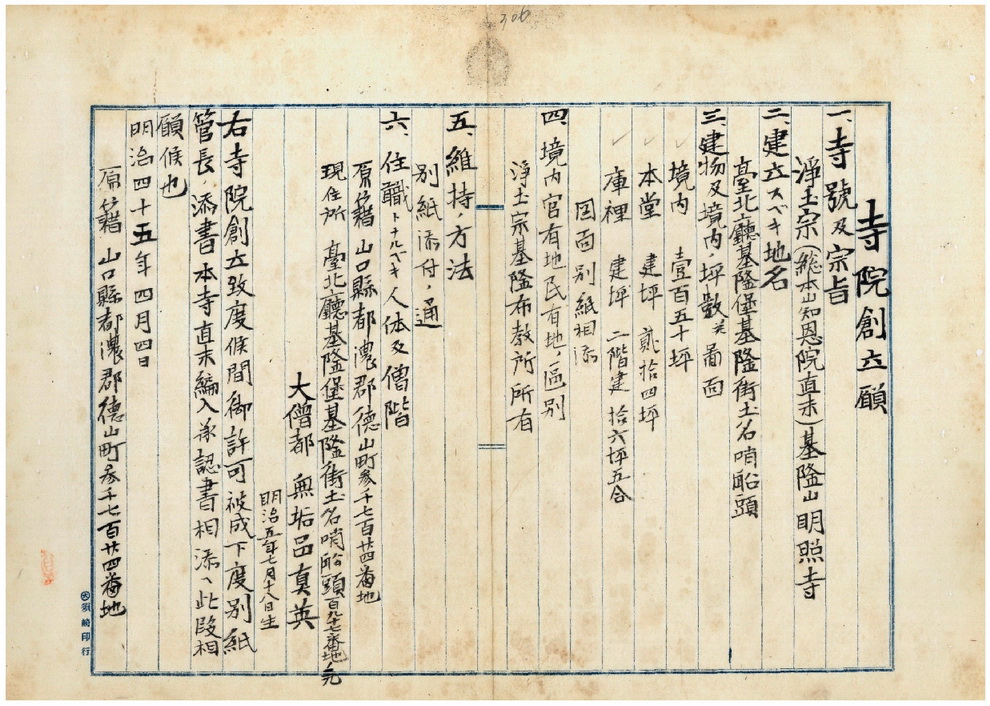 306
寺院創立願
一、寺號及宗旨
淨土宗(總本山知恩院直末)基隆山明照寺
二、建立スベキ地名
臺北廳基隆堡基隆街土名哨船頭
三、建物及境内ノ坪數並圖面
境内 壹百五十坪
本堂 建坪 貳拾四坪
庫裡 建坪 二階建 拾六坪五合
図面 別紙相添
四、境内官有地民有地ノ區別
淨土宗基隆布教所所有
五、維持ノ方法
別紙添付ノ通
六、住職トナルベキ人体及僧階
原籍 山口縣都濃郡德山町參千七百廿四番地
現住所 臺北廳基隆堡基隆街土名哨船頭百九十七番地ノ元
大僧都 無垢品真英
明治五年七月十八日生
右寺院創立致度候間御許可被成下度別紙
管長ノ添書本寺直末編入承認書相添ヘ此段相
願候也
明治四十五年四月四日
原籍 山口縣都濃郡德山町參千七百廿四番地
須崎印行